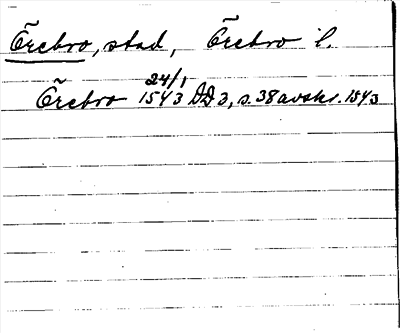 Örebro, stad, Örebro l.
Örebro 24/1 1543 DD 3, s. 38 avskr. 1543